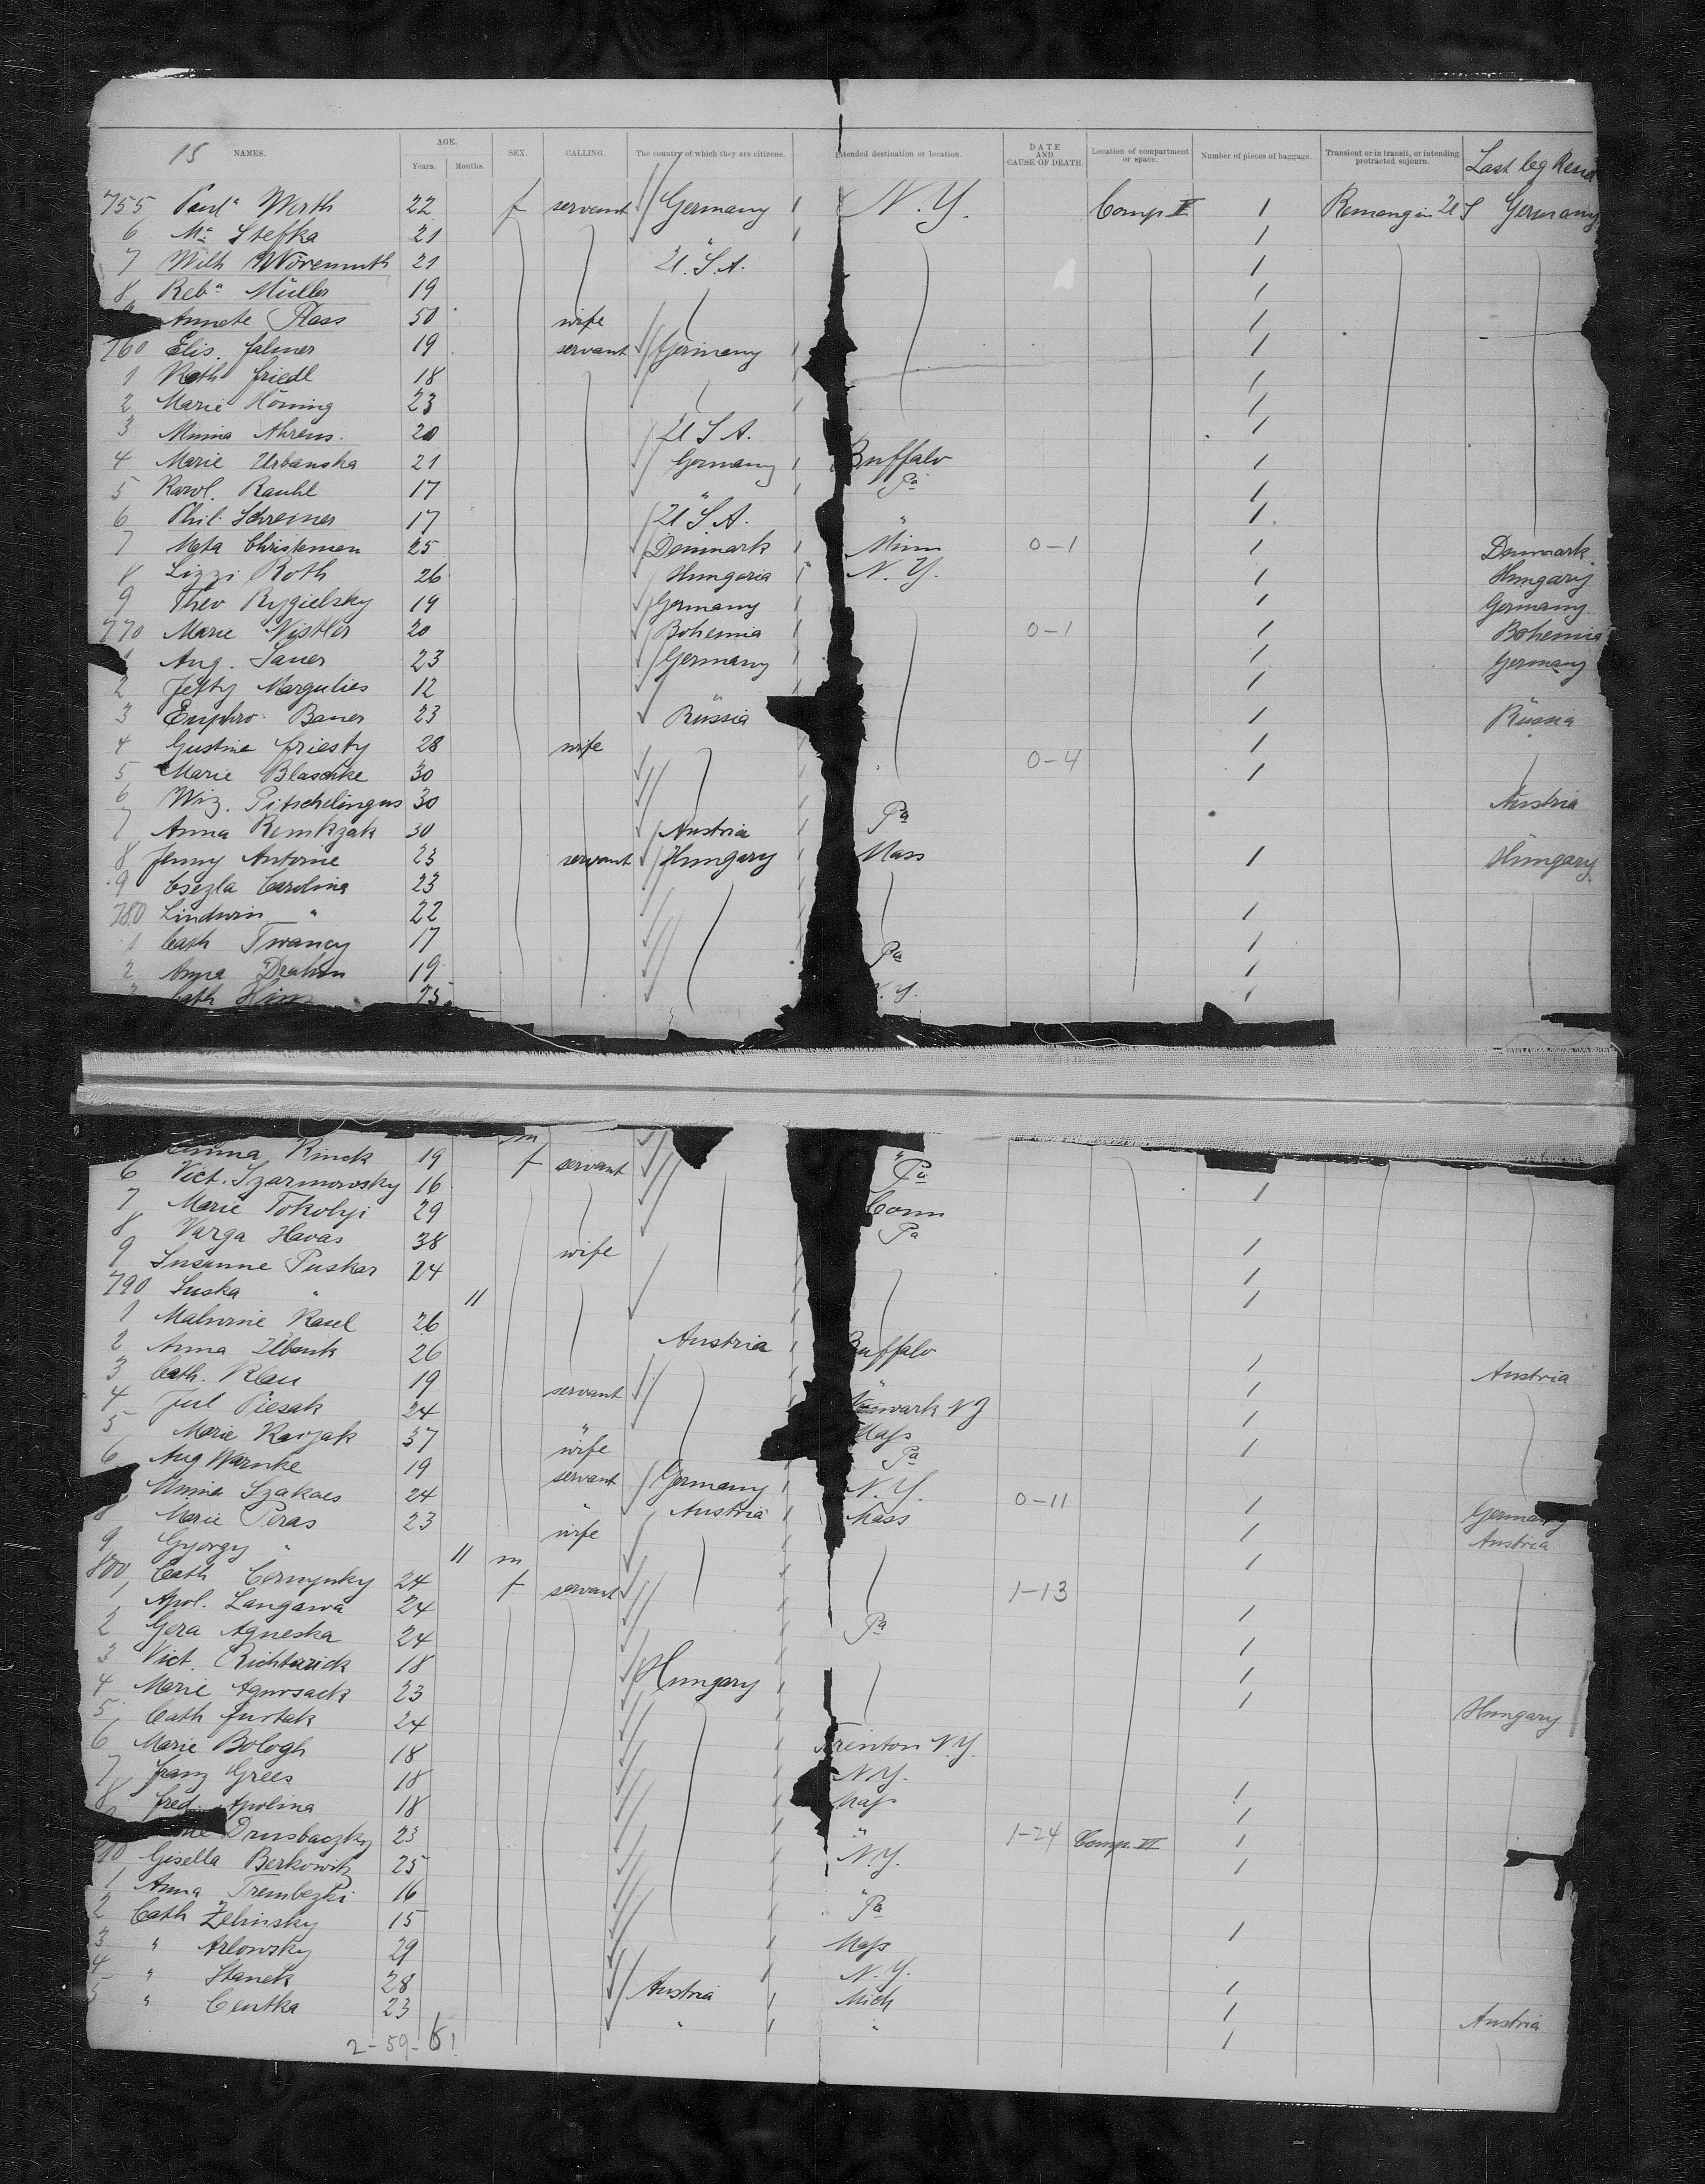 15 NAMES. AGE. Years. Months. SEX. CALLING. The country of which they are citizens. Intended destination or location. DATE AND CAUSE OF DEATH. Location of compartment or space. Number of pieces of baggage. Transient or in transit, or intending protracted sojourn. Last leg Resid
755 Paula Werth 22 f servant Germany N.Y. Comp II 1 Germany
6 Ma Stefka 21 " 1
7 Wilh 21 U.S.A. 1
8 Reba Müller 19 1
Annete Plass 50 wife 1
760 Elis. 19 servant Germany 1
1 Kath Friedl 18 1
2 Marie Höning 23 1
3 Minna Ahrens. 20 U S A. 1
4 Marie Urbanska 21 Germany Buffalo 1
5 Karol. Rauhl 17 " Pa 1
6 Phil. Schreiner 17 U S A. " 1
7 Meta Christensen 25 Denmark Minn 0-1 1 Denmark
8 Lizzi Roth 26 Hungaria N.Y. 1 Hungary
9 Theo Rygielsky 19 Germany 1 Germany
770 Marie Nistler 20 Bohemia 0-1 1 Bohemia
1 Aug. Sauer 23 Germany 1 Germany
2 Jetty Margulies 12 " 1
3 Euphro. Bauer 23 Russia 1 Russia
4 Gustine 28 wife 1
5 Marie Blaschke 30 0-4 1
6 Wiz. Pitschelingus 30 Pa Austria
7 Anna Remkzak 30 Austria
8 Jenny Antonie 23 servant Hungary Mass 1 Hungary
9 Csezla Carolina 23
780 " 22 1
1 Cath Twancy 17 Pa 1
2 Anna 19 1
3 Cath 1
Rinck 19 f servant "
6 Vict. Szarmowsky 16 Pa 1
7 Marie Tokolyi 29 Conn
8 Varga Havas 38 wife Pa 1
9 Susanne Puskar 24 1
790 Suska " 11 1
1 Malwine 26
2 Anna 26 Austria Buffalo 1
3 Cath. Klau 19 servant " 1 Austria
4 Jul Piesak 24 " Newark NJ 1
5 Marie 37 wife Mass 1
6 Aug Warnke 19 servant Germany Pa
Minna Szakacs 24 " Austria N.Y. 0-11 1 Germany
8 Marie Peras 23 wife Mass 1 Austria
9 Gyorgy " 11 m 1
800 Cath 24 f servant 1-13
1 Apol. Langawa 24 1
2 Gera Agneska 24 Pa 1
3 Vict. 18 Hungary 1
4 Marie 23 1
5 Cath Furtak 24 Hungary
6 Marie Bologh 18 Trenton N.Y.
7 Franz Grees 18 N.Y. 1
8 Fred. Apolina 18 Mass 1
23 " 1-24 Comp. VI 1
810 Gisella Berkowitz 25 N.Y. 1
1 Anna Trembezki 16 "
2 Cath Zelinsky 15 Pa 1
3 " Arlowsky 29 Mass
4 " Stanek 28 Austria N.Y. 1
5 " Centka 23 Mich 1 Austria
2-59- " " 1